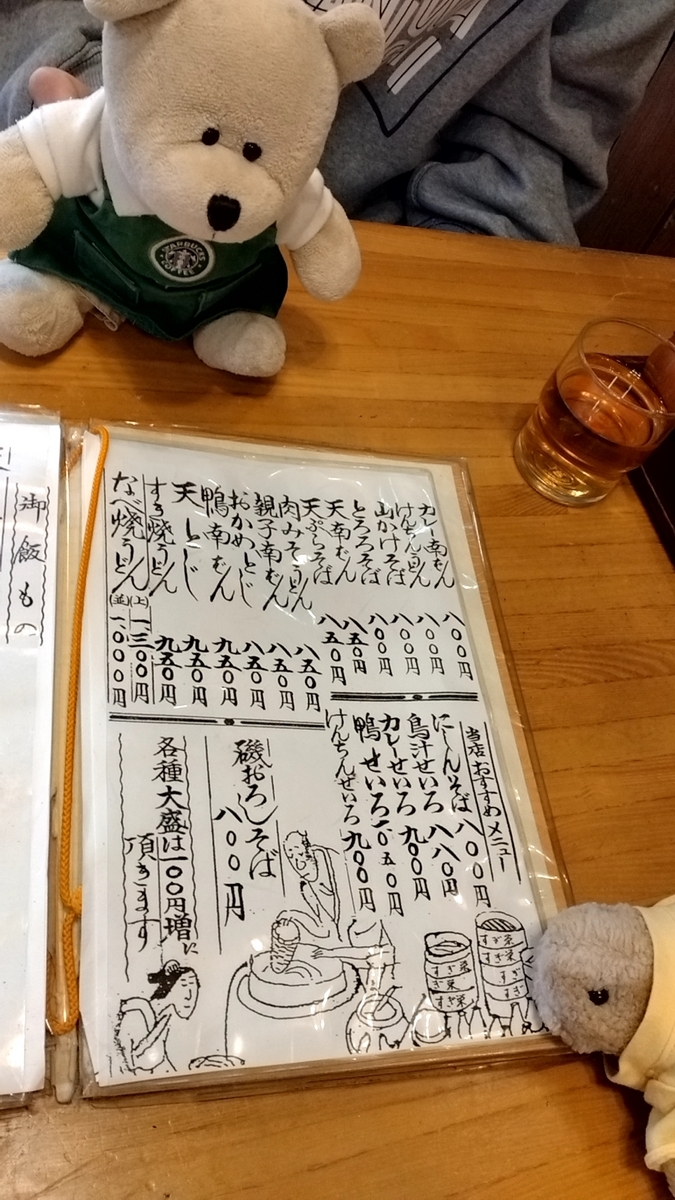 STARBUCKS
COFFEE
カレー南ばん 八〇〇円
けんちんうどん 八〇〇円
山かけそば 八〇〇円
とろろそば 八〇〇円
天南ばん 八五〇円
天ぷらそば 八五〇円
肉みそうどん 八五〇円
親子南ばん 八五〇円
おかめとじ 八五〇円
鴨南ばん 九五〇円
天とじ 九五〇円
すき焼うどん 九五〇円
なべ焼うどん (上) 一、三〇〇円
(並) 一、〇〇〇円
当店おすすめメニュー
にしんそば 八〇〇円
鳥汁せいろ 八八〇円
カレーせいろ 九〇〇円
鴨せいろ 一〇五〇円
けんちんせいろ 九〇〇円
磯おろしそば
八〇〇円
各種大盛は一〇〇円増に
頂きます
すぎ栄
すぎ栄
すぎ
すぎ
すぎ
御飯もの